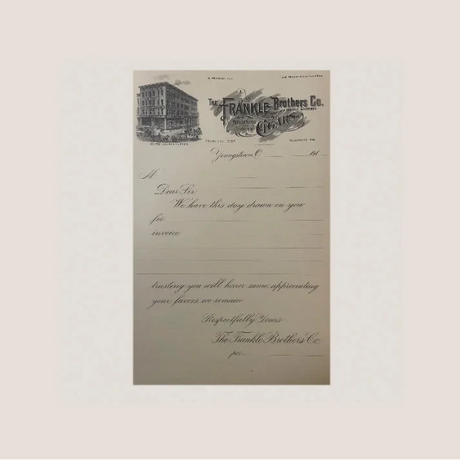 The Frankle Brothers Co.
Cigars
Youngstown, O. 190
M
Dear Sir
We have this day drawn on you
for
invoice
trusting you will honor same, appreciating
your favors, we remain
Respectfully Yours
The Frankle Brothers Co.
per